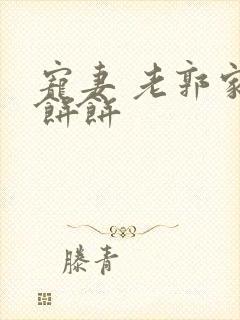 寵妻 老郭家
餅餅
滕青